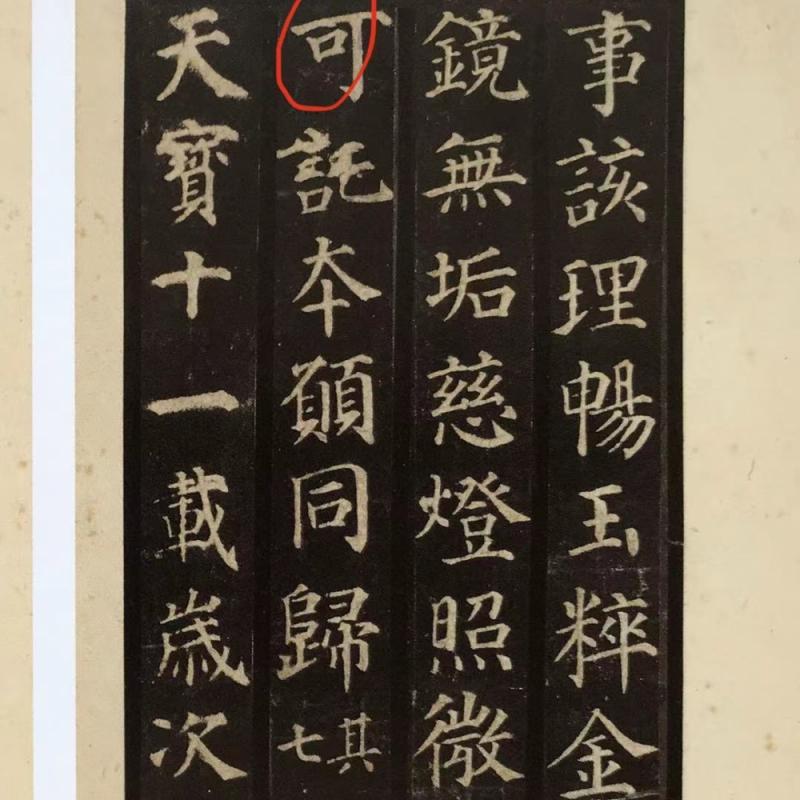 事該理暢玉粹金
鏡無垢慈燈照微
可託本願同歸其七
天寶十一載歲次